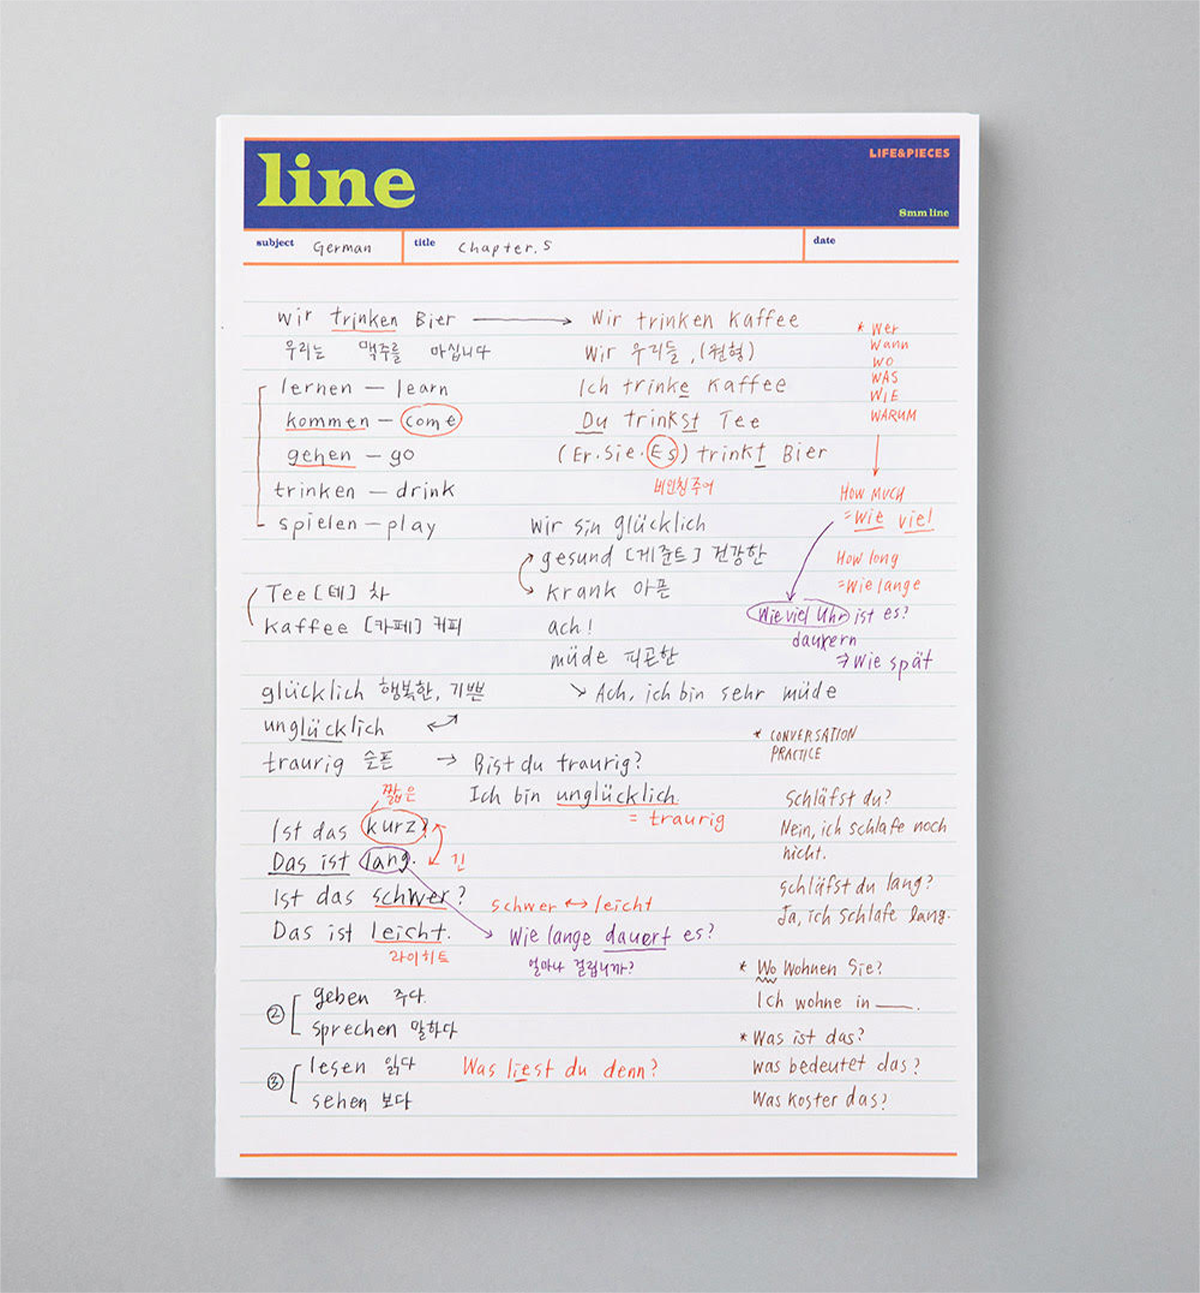 line
LIFE&PIECES
8mm line
subject German
title Chapter. 5
date
wir trinken Bier → Wir trinken Kaffee
우리는 맥주를 마십니다
Wir 우리들, (원형)
lernen — learn
Ich trinke Kaffee
kommen — come
Du trinkst Tee
gehen — go
(Er. Sie. Es) trinkt Bier
비인칭주어
trinken — drink
spielen — play
* Wer
Wann
WO
WAS
WIE
WARUM
HOW MUCH
= Wie viel
How long
= Wie lange
Wie viel Uhr ist es?
dauern
⇒ Wie spät
Wir sin glücklich
gesund [게준트] 건강한
krank 아픈
ach!
müde 피곤한
↘ Ach, ich bin sehr müde
Tee [테] 차
Kaffee [카페] 커피
glücklich 행복한, 기쁜
unglücklich
traurig 슬픈 → Bist du traurig?
Ich bin unglücklich
= traurig
짧은
Ist das kurz?
Das ist lang.
긴
Ist das schwer?
schwer ↔ leicht
Das ist leicht.
라이히트
Wie lange dauert es?
얼마나 걸립니까?
② geben 주다.
sprechen 말하다
③ lesen 읽다
sehen 보다
Was liest du denn?
* CONVERSATION
PRACTICE
Schläfst du?
Nein, ich schlafe noch
nicht.
schläfst du lang?
Ja, ich schlafe lang.
* Wo Wohnen Sie?
Ich wohne in ___.
* Was ist das?
was bedeutet das?
Was koster das?